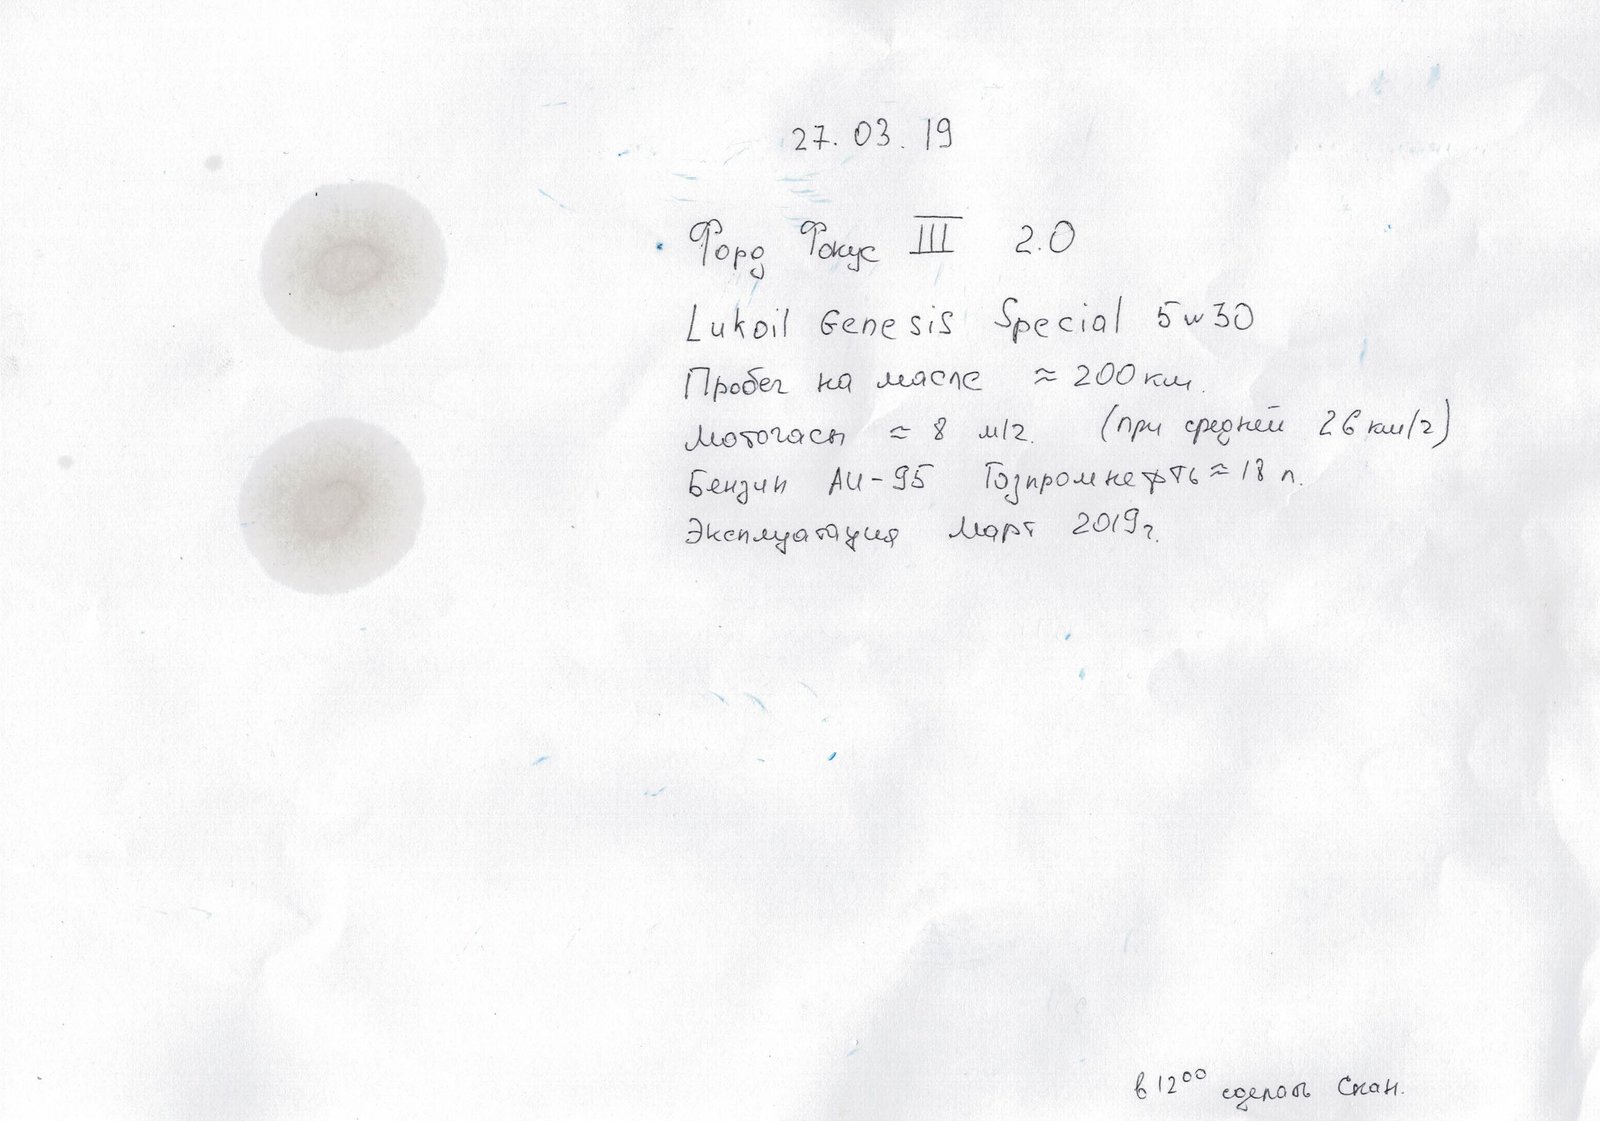 27.03.19
Форд Фокус III 2.0
Lukoil Genesis Special 5w30
Пробег на масле ≈ 200 км.
Моточасы ≈ 8 м/ч. (при средней 26 км/ч)
Бензин АИ-95 Газпромнефть ≈ 18 л.
Эксплуатация Март 2019г.
в 12⁰⁰ сделать Скан.